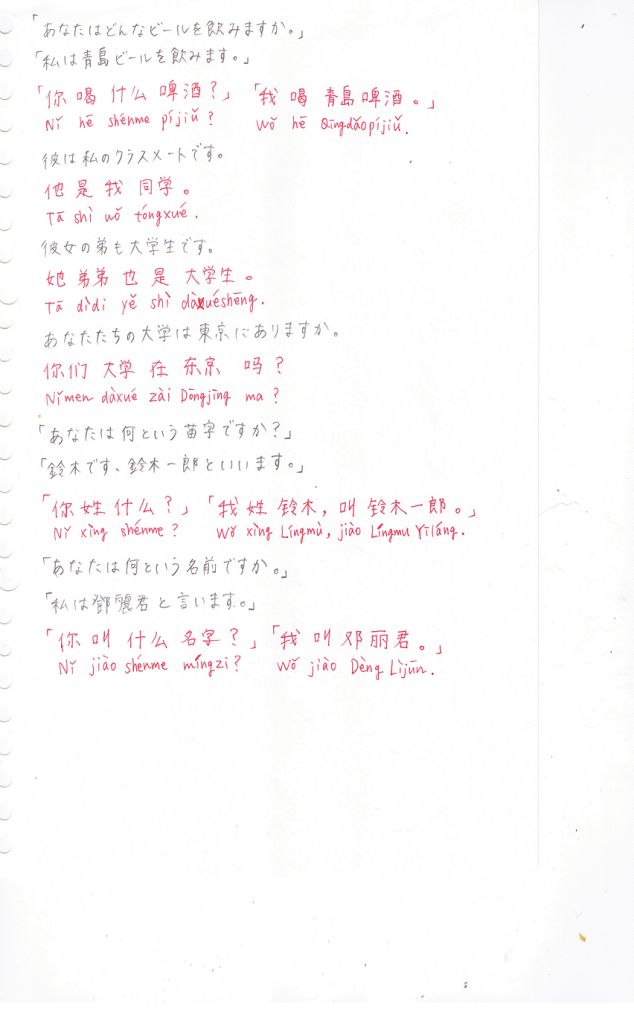 「あなたはどんなビールを飲みますか。」
「私は青島ビールを飲みます。」
「你喝什么啤酒？」「我喝青島啤酒。」
Nǐ hē shénme píjiǔ? Wǒ hē Qīngdǎopíjiǔ.
彼は私のクラスメートです。
他是我同学。
Tā shì wǒ tóngxué.
彼女の弟も大学生です。
她弟弟也是大学生。
Tā dìdi yě shì dàxuéshēng.
あなたたちの大学は東京にありますか。
你们大学在东京吗？
Nǐmen dàxué zài Dōngjīng ma?
「あなたは何という苗字ですか？」
「鈴木です、鈴木一郎といいます。」
「你姓什么？」「我姓铃木，叫铃木一郎。」
Nǐ xìng shénme? Wǒ xìng Língmù, jiào Língmu Yīláng.
「あなたは何という名前ですか。」
「私は鄧麗君と言います。」
「你叫什么名字？」「我叫邓丽君。」
Nǐ jiào shénme míngzi? Wǒ jiào Dèng Lìjūn.